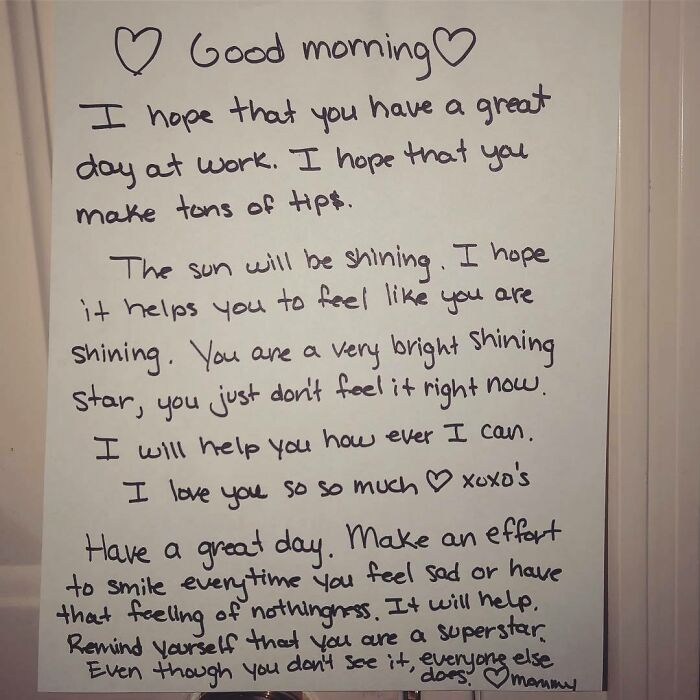 ♡ Good morning ♡
I hope that you have a great
day at work. I hope that you
make tons of tip$.
The sun will be shining. I hope
it helps you to feel like you are
shining. You are a very bright shining
star, you just don't feel it right now.
I will help you how ever I can.
I love you so so much ♡ xoxo's
Have a great day. Make an effort
to smile everytime you feel sad or have
that feeling of nothingness. It will help.
Remind yourself that you are a superstar.
Even though you don't see it, everyone else
does. ♡ mommy